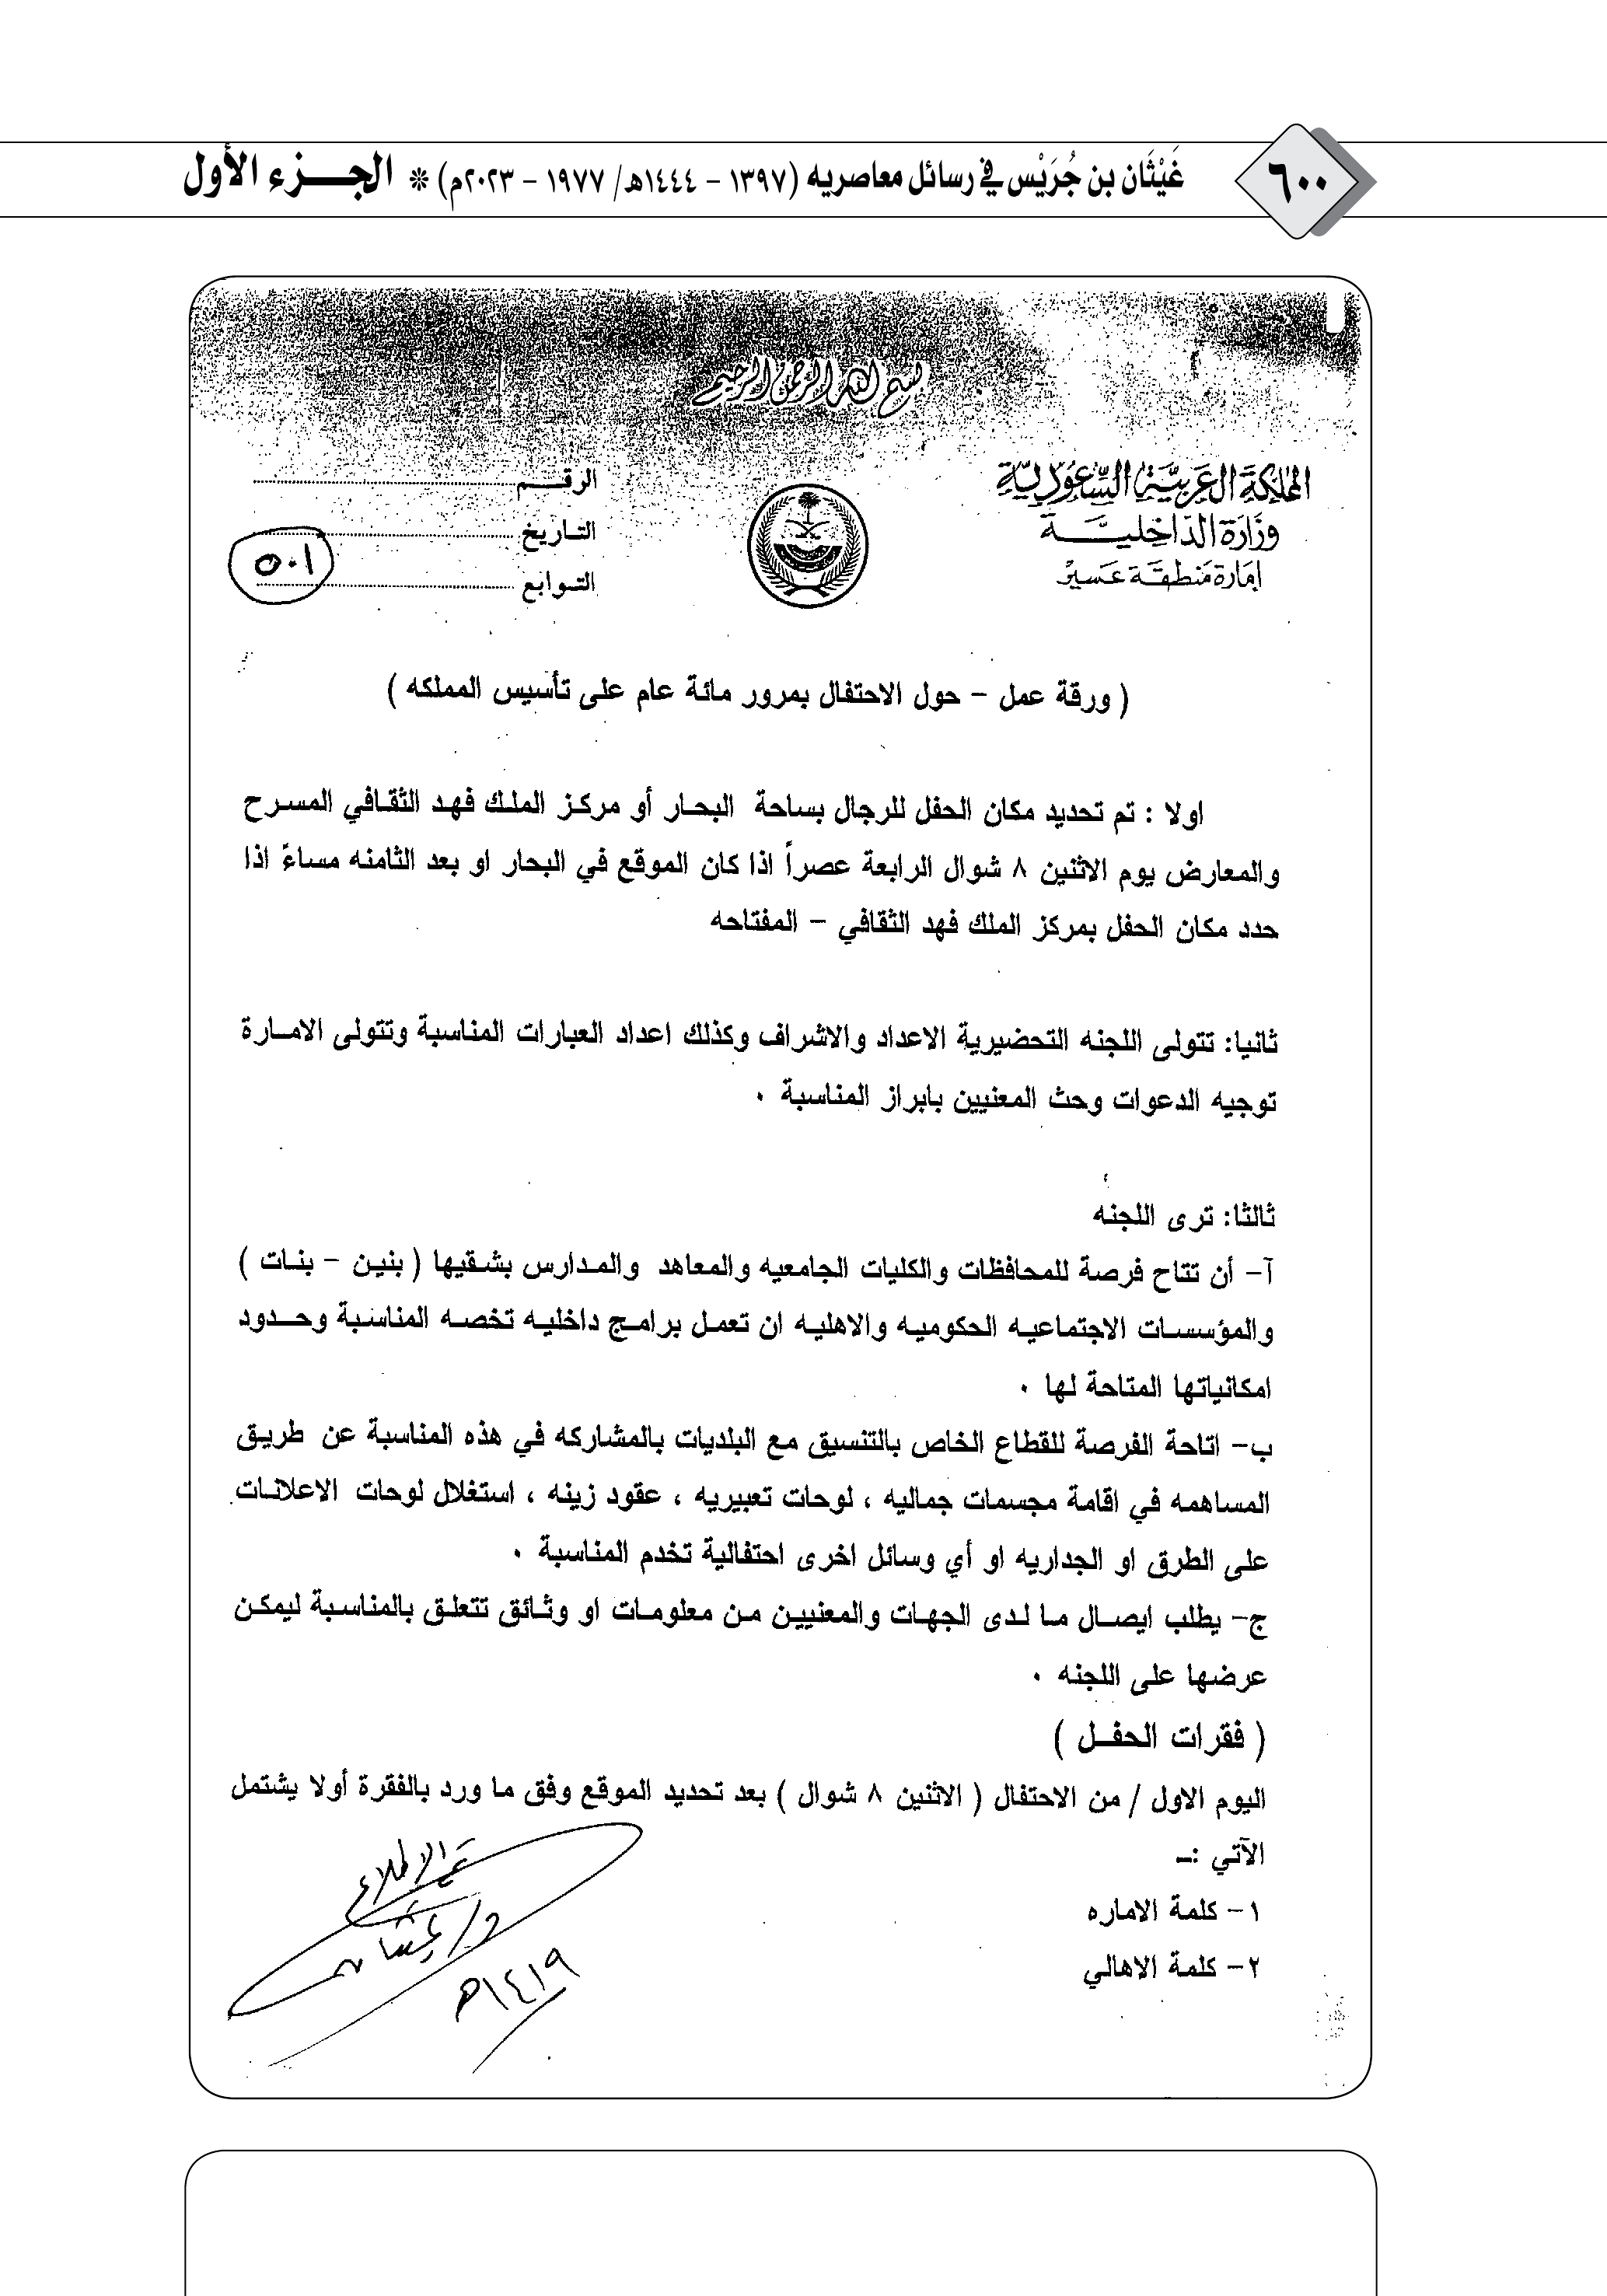 ٦٠٠
غَيْثَان بن جُرَيْس في رسائل معاصريه (١٣٩٧ - ١٤٤٤هـ/ ١٩٧٧ - ٢٠٢٣م) * الجزء الأول
بسم الله الرحمن الرحيم
المملكة العربية السعودية
وزارة الداخلية
إمارة منطقة عسير
الرقم
التاريخ
التوابع
٥٠١
( ورقة عمل - حول الاحتفال بمرور مائة عام على تأسيس المملكه )
اولا : تم تحديد مكان الحفل للرجال بساحة البحار أو مركز الملك فهد الثقافي المسرح
والمعارض يوم الاثنين ٨ شوال الرابعة عصراً اذا كان الموقع في البحار او بعد الثامنه مساءً اذا
حدد مكان الحفل بمركز الملك فهد الثقافي - المفتاحه
ثانيا: تتولى اللجنه التحضيرية الاعداد والاشراف وكذلك اعداد العبارات المناسبة وتتولى الامارة
توجيه الدعوات وحث المعنيين بابراز المناسبة .
ثالثا: ترى اللجنه
آ- أن تتاح فرصة للمحافظات والكليات الجامعيه والمعاهد والمدارس بشقيها ( بنين - بنات )
والمؤسسات الاجتماعيه الحكوميه والاهليه ان تعمل برامج داخليه تخصه المناسبة وحدود
امكانياتها المتاحة لها .
ب- اتاحة الفرصة للقطاع الخاص بالتنسيق مع البلديات بالمشاركه في هذه المناسبة عن طريق
المساهمه في اقامة مجسمات جماليه ، لوحات تعبيريه ، عقود زينه ، استغلال لوحات الاعلانات
على الطرق او الجداريه او أي وسائل اخرى احتفالية تخدم المناسبة .
ج- يطلب ايصال ما لدى الجهات والمعنيين من معلومات او وثائق تتعلق بالمناسبة ليمكن
عرضها على اللجنه .
( فقرات الحفل )
اليوم الاول / من الاحتفال ( الاثنين ٨ شوال ) بعد تحديد الموقع وفق ما ورد بالفقرة أولا يشتمل
الآتي :ـ
١- كلمة الاماره
٢- كلمة الاهالي
تم الاطلاع
د/ غيثان
١٤١٩هـ